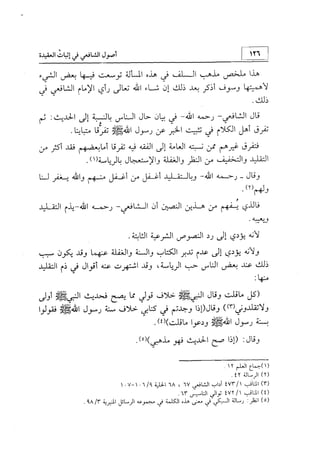 ١٢٦
أصول الشافعي في إثبات العقيدة
هذا ملخص مذهب السلف في هذه المسألة توسعت فيها بعض الشيء
لأهميتها وسوف أذكر بعد ذلك إن شاء الله تعالى رأي الإمام الشافعي في
ذلك.
قال الشافعي- رحمه الله- في بيان حال الناس بالنسبة إلى الحديث: ثم
تفرق أهل الكلام في تثبيت الخبر عن رسول الله ﷺ تفرقًا متباينا.
فتفرق غيرهم ممن نسبته العامة إلى الفقه فيه تفرقا أما بعضهم فقد أكثر من
التقليد والتخفيف من النظر والغفلة والاستعجال بالرياسة(١).
وقال ـ رحمه الله- وبالتقليد أغفل من أغفل منهم والله يغفر لنا
ولهم(٢).
فالذي يُفهم من هذين النصين أن الشافعي- رحمه الله-يذم التقليد
ويعيبه.
لأنه يؤدي إلى رد النصوص الشرعية الثابتة.
ولأنه يؤدي إلى عدم تدبر الكتاب والسنة والغفلة عنهما وقد يكون سبب
ذلك عند بعض الناس حب الرياسة، وقد اشتهرت عنه أقوال في ذم التقليد
منها:
(كل ماقلت وقال النبي ﷺ خلاف قولي مما يصح فحديث النبي ﷺ أولى
ولاتقلدوني(٣) وقال(إذا وجدتم في كتابي خلاف سنة رسول الله ﷺ فقولوا
بسنة رسول الله ﷺ ودعوا ماقلت)(٤).
وقال: (إذا صح الحديث فهو مذهبي)(٥).
(١) جماع العلم ١٢.
(٢) الرسالة ٤٢.
(٣) المناقب ٤٧٣/١ آداب الشافعي ٦٧ ، ٦٨ الحلية ١٠٦/٩-١٠٧
(٤) المناقب ٤٧٢/١ توالي التأسيس ٦٣
(٥) انظر: رسالة السبكي في معنى هذه الكلمة في مجموعة الرسائل المنيرية ٩٨/٣.